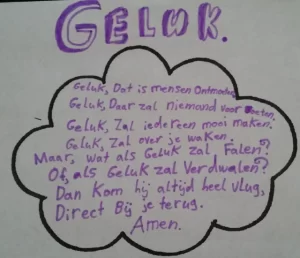 GELUK.
Geluk, Dat is mensen Ontmoeten,
Geluk, Daar zal niemand voor Boeten.
Geluk, Zal iedereen mooi maken.
Geluk, Zal over je waken.
Maar, wat als Geluk zal Falen?
Of, als Geluk zal Verdwalen?
Dan Kom hij altijd heel vlug,
Direct Bij je terug.
Amen.